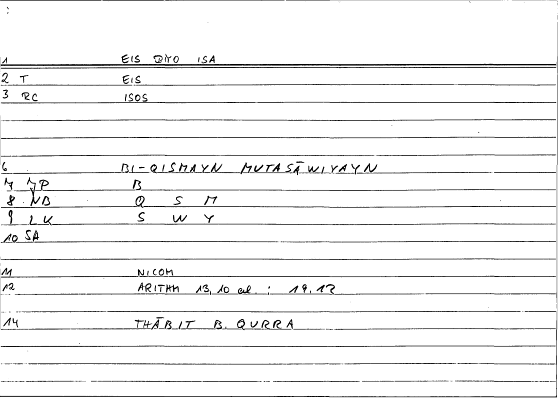 :
1 EIS DYO ISA
2 T EIS
3 RC ISOS
6 BI-QISMAYN MUTASĀWIYAYN
7 JP B
8 NB Q S M
9 LK S W Y
10 SA
11 NICOM
12 ARITHM 13,10 al. : 19,17
14 THĀBIT B. QURRA